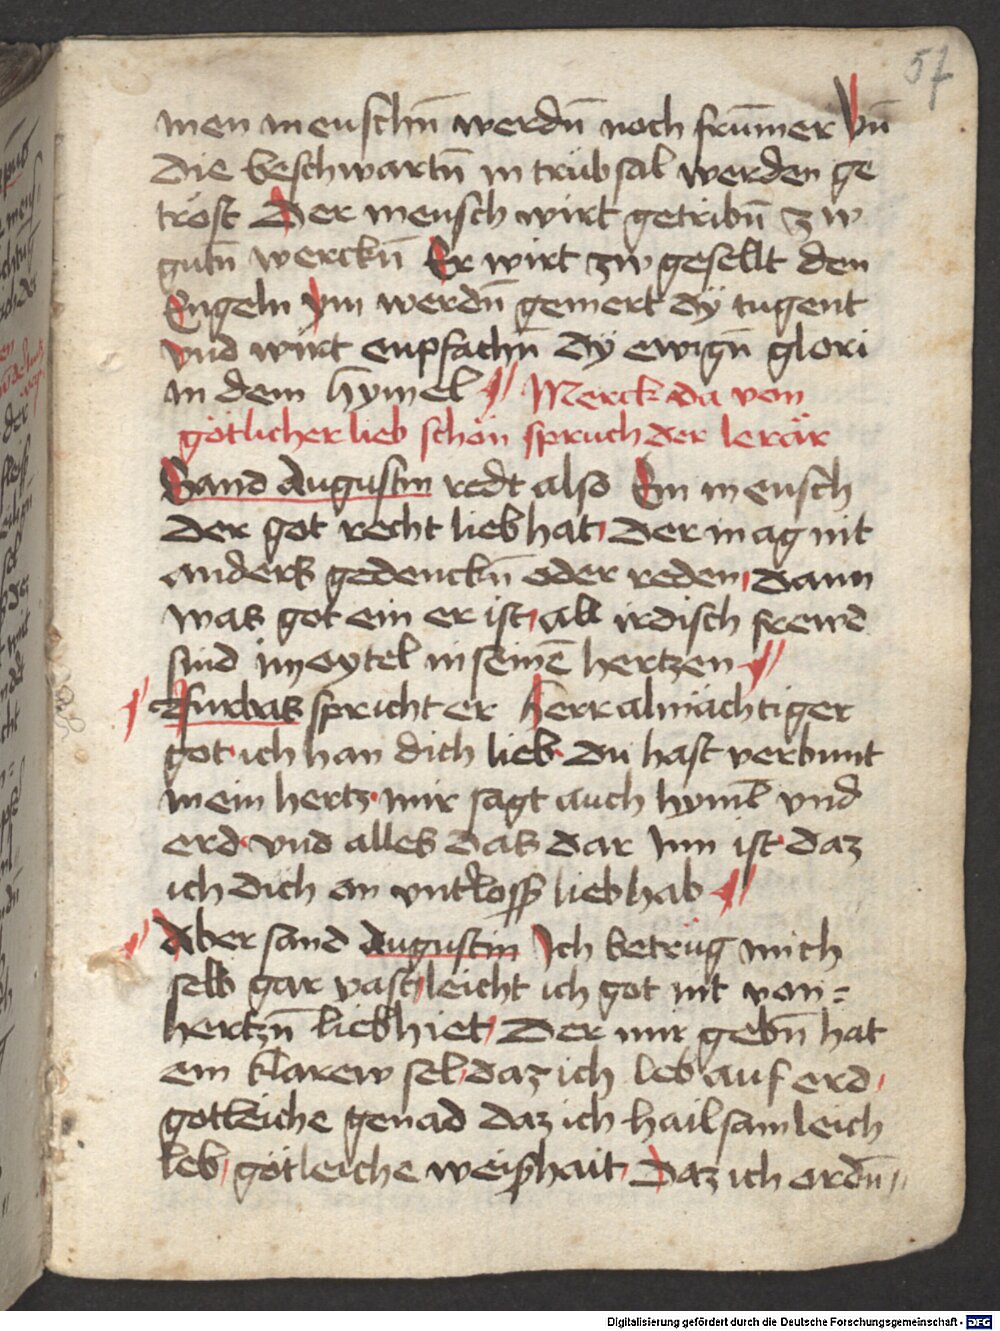 57
men menschn̄ werdn̄ noch frūmer vn̄
die beschwartn̄ in trübsal werden ge
tröst Der mensch wirt getribn̄ zw
gutn̄ werckn̄ Er wirt zw gesellt den
Engeln ym werdn̄ gemert dÿ tugent
vnd wirt enpfachn̄ dÿ ewign̄ glori
in dem hymel Merck da von
götlicher lieb schön spruch der lerär
Sand Augustin redt also Ein mensch
der got recht lieb hat der mag nit
anders gedenckn̄ oder reden dann
was got ein er ist all irdisch frewd
sind im eytel in seinē hertzen
Furbas spricht er herr almächtiger
got ich han dich lieb du hast verbunt
mein hertz mir sagt auch hyml vnd
erd vnd alles das dar Inn ist daz
ich dich on vnt̕loss lieb hab
Aber sand Augustin Ich betrüg mich
selb gar vast leicht ich got nit von=
hertzn̄ lieb hiet Der mir gebn̄ hat
ein klarew sel daz ich leb auf erd
gotleiche genad daz ich hailsamleich
leb götleiche weishait Daz ich ordn̄
Digitalisierung gefördert durch die Deutsche Forschungsgemeinschaft - DFG